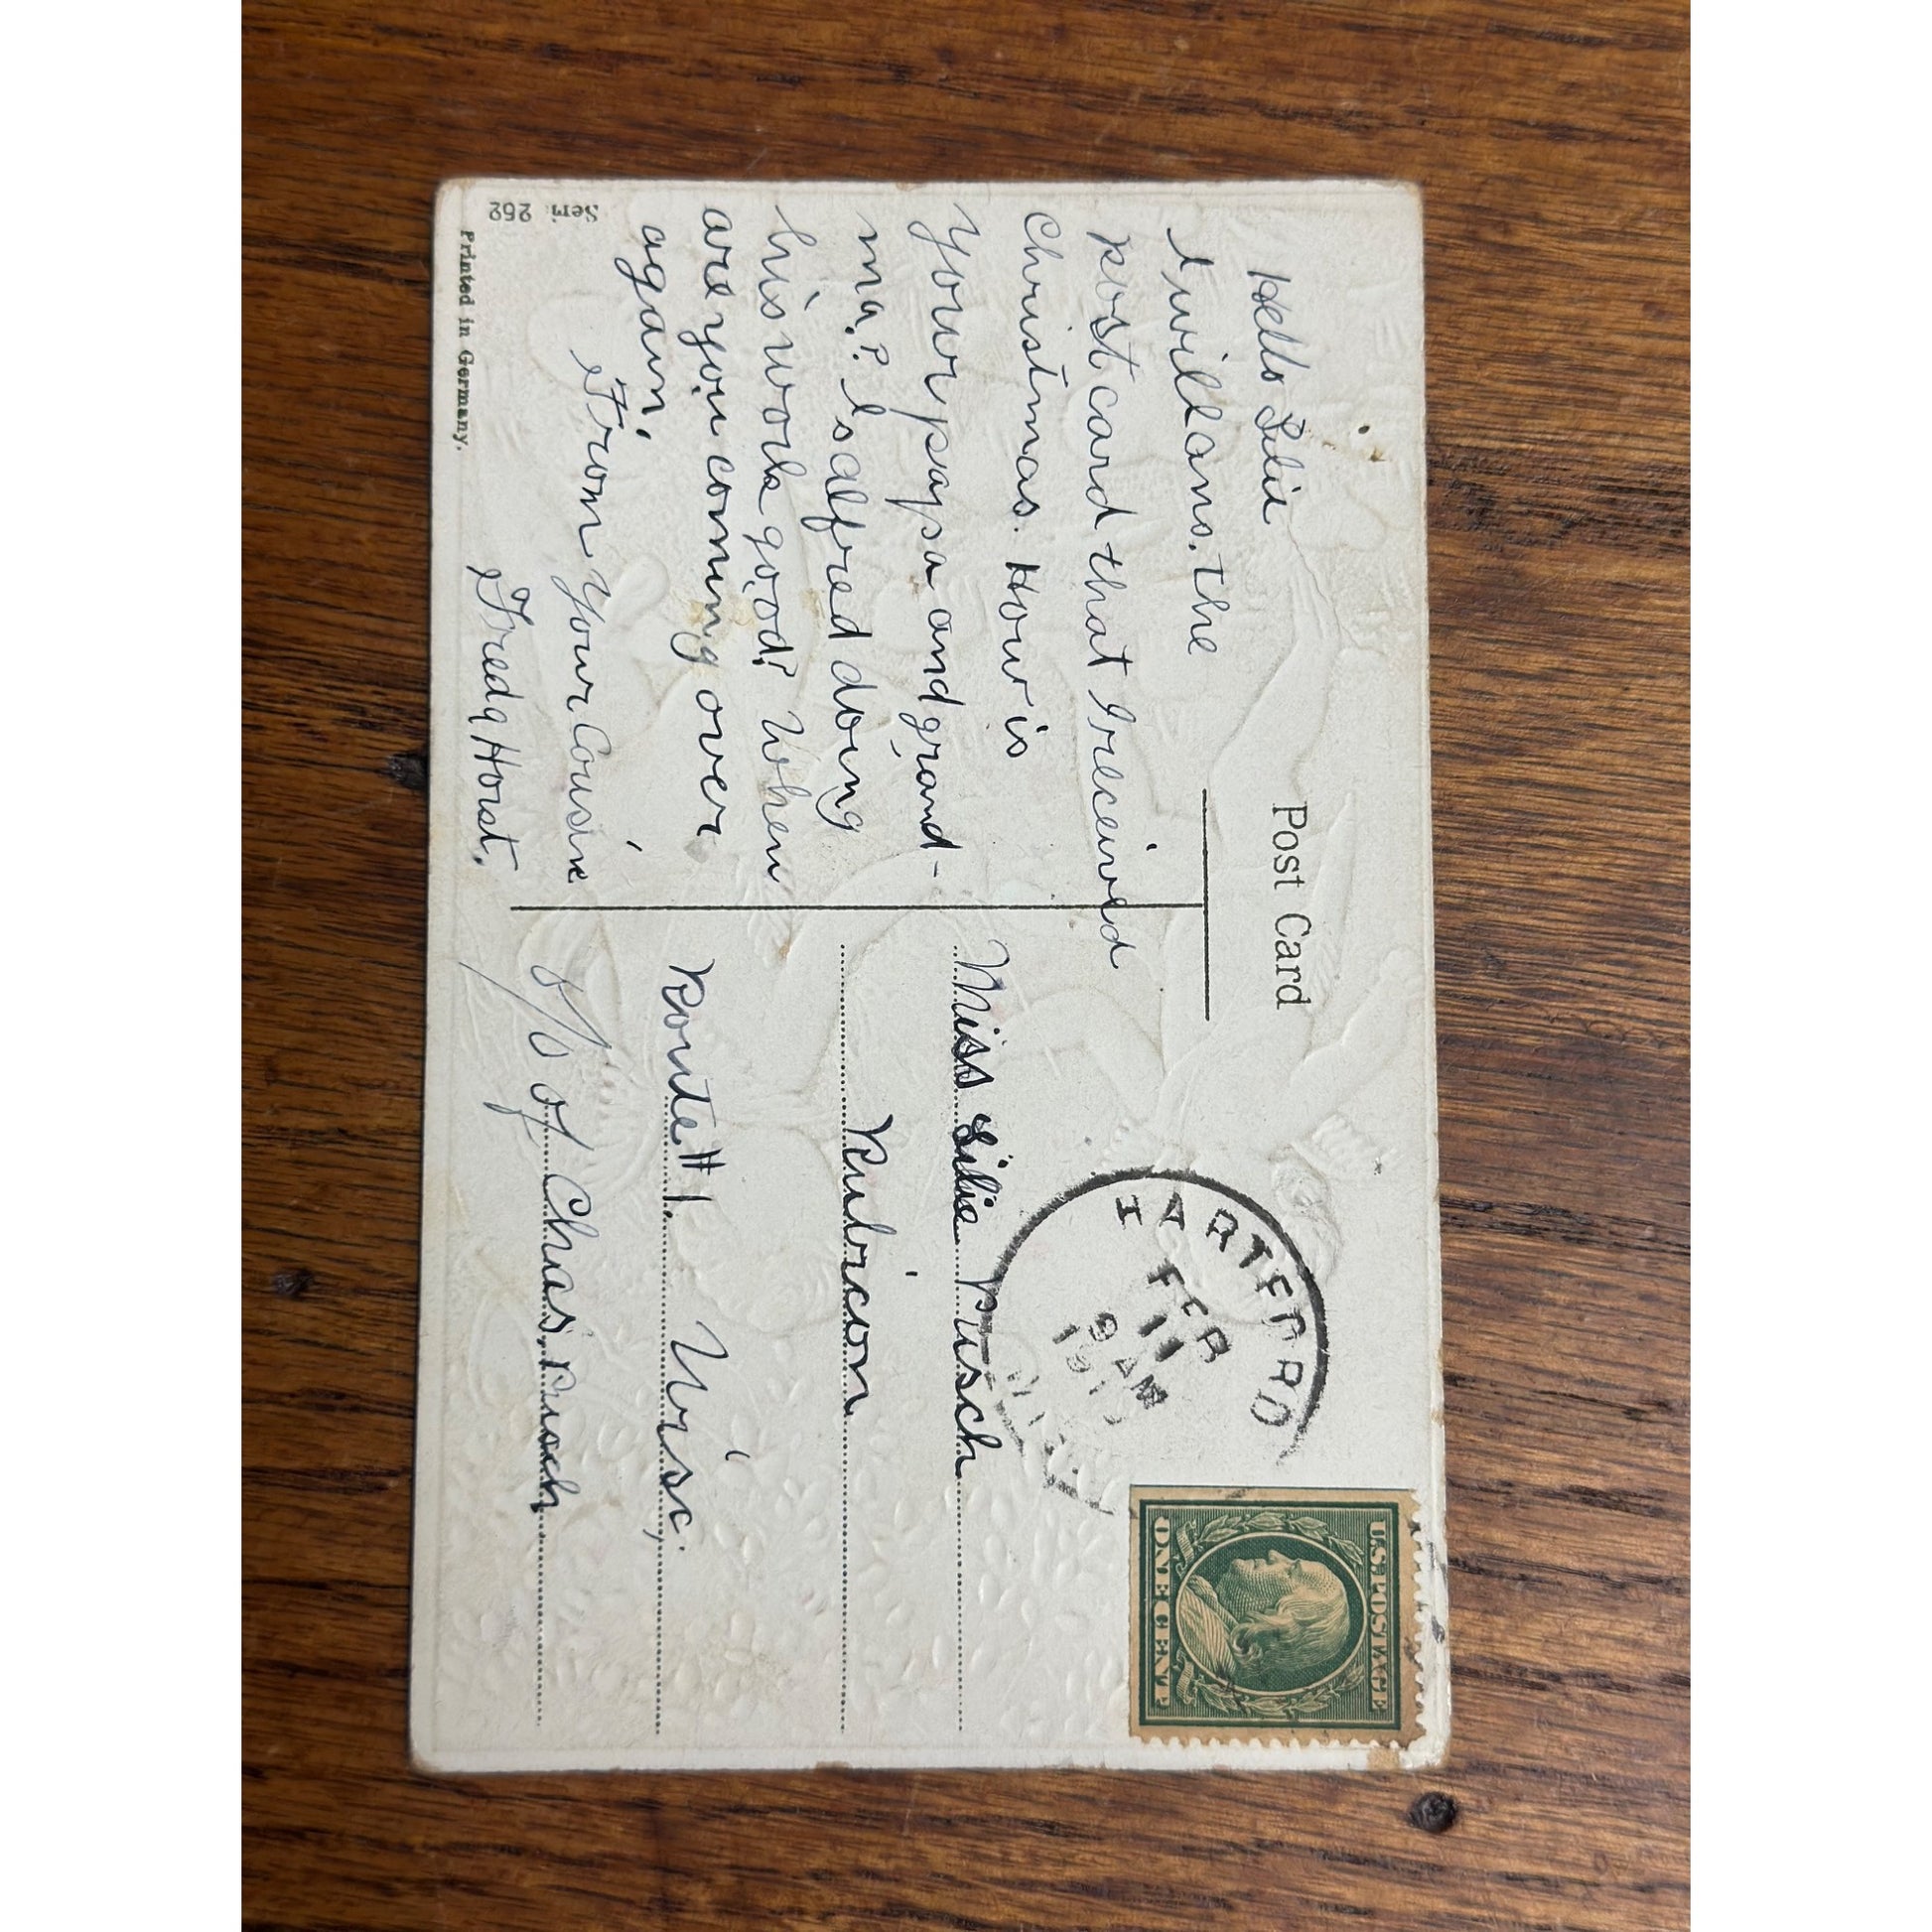 Post Card
Hello Lilie
I will ans. the
post card that I received
Christmas. How is
your papa and grand-
ma? Is alfred doing
his work good? When
are you coming over
again.
From your Cousin
Freda Horst.
Seri 252
Printed in Germany.
HARTFORD
FEB
11
9 AM
U.S. POSTAGE
ONE CENT
Miss Lilie Rusch
Rubicon
Route # 1. Wisc.
c/o of Chas. Rusch